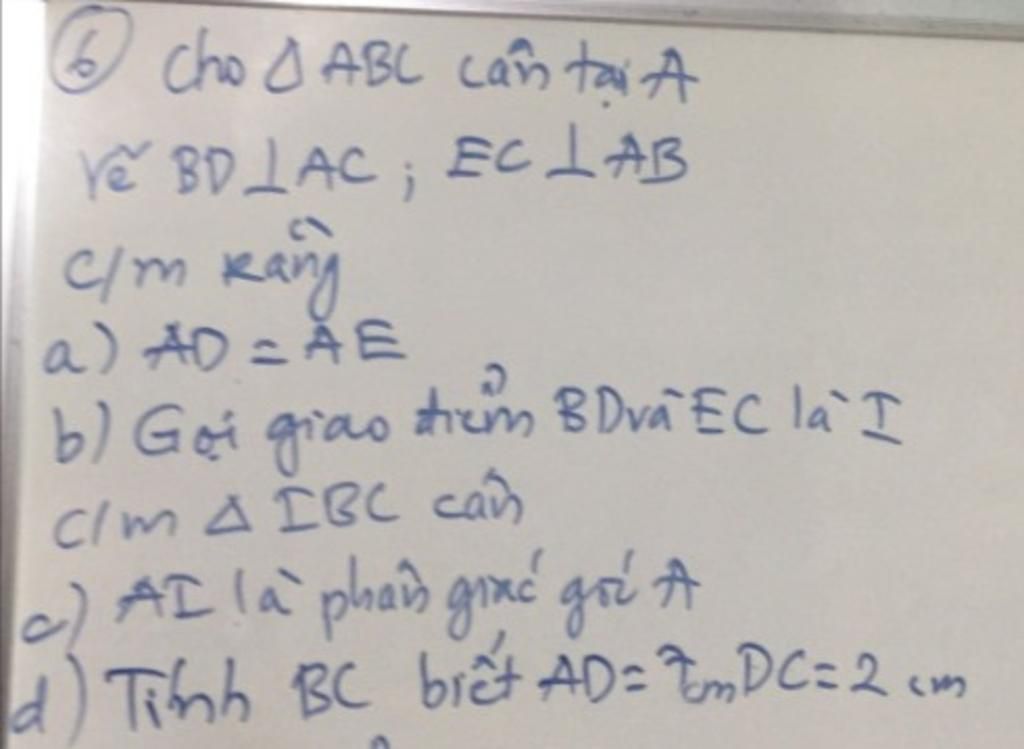 6 Cho Δ ABC cân tại A
Vẽ BD⊥AC; EC⊥AB
C/m rằng
a) AD = AE
b) Gọi giao điểm BD và EC là I
C/m Δ IBC cân
c) AI là phân giác góc A
d) Tính BC biết AD = 7cm DC = 2 cm